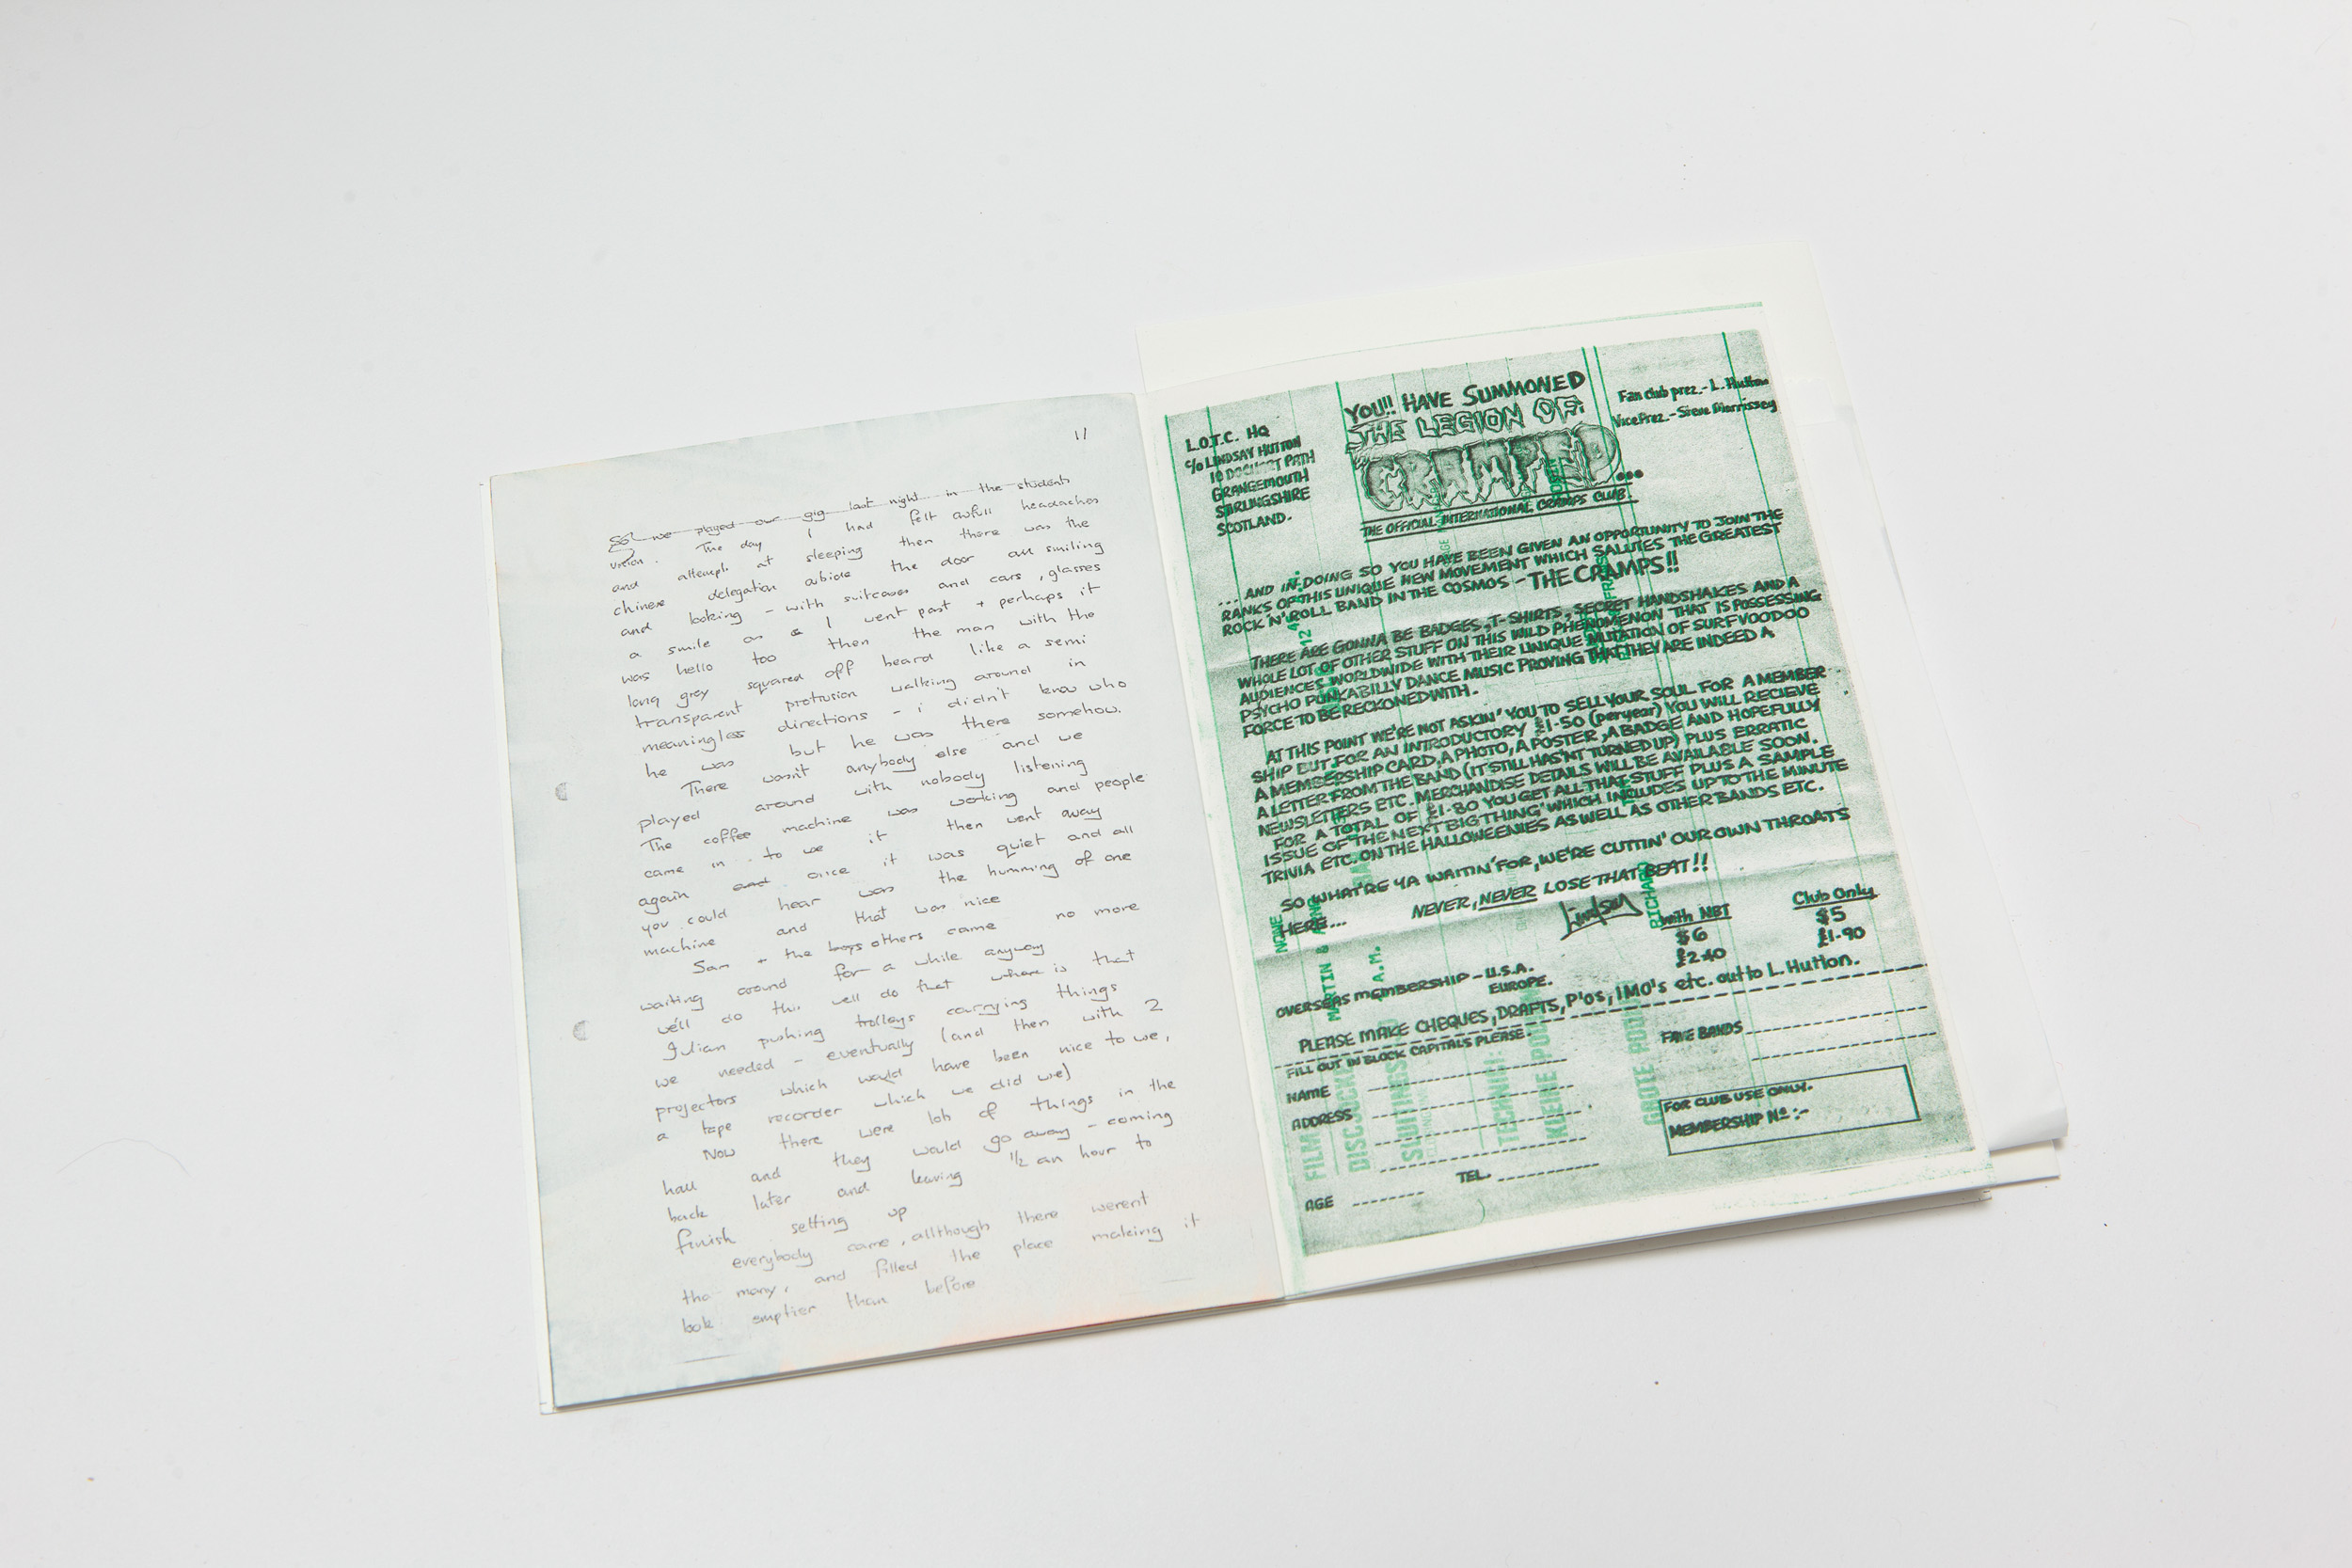 1/
So we played our gig last night in the students
union. The day I had felt awfull headaches
and attempts at sleeping then there was the
chinese delegation outside the door all smiling
and looking - with suitcases and cars, glasses
a smile as I went past + perhaps it
was hello too then the man with the
long grey squared off beard like a semi
transparent protrusion walking around in
meaningless directions - i didn't know who
he was but he was there somehow.
There wasn't anybody else and we
played around with nobody listening
The coffee machine was working and people
came in to use it then went away
again and once it was quiet and all
you could hear was the humming of one
machine and that was nice
Sam + the boys others came no more
waiting around for a while anyway
we'll do this we'll do that where is that
Julian pushing trolleys carrying things
we needed - eventually (and then with 2
projectors which would have been nice to use,
a tape recorder which we did use)
Now there were lots of things in the
hall and they would go away - coming
back later and leaving 1/2 an hour to
finish setting up
everybody came, allthough there werent
tha many, and filled the place making it
look emptier than before
L.O.T.C. HQ
c/o LINDSAY HUTTON
10 DOCHART PATH
GRANGEMOUTH
STIRLINGSHIRE
SCOTLAND.
YOU!! HAVE SUMMONED
THE LEGION OF:
CRAMPED...
THE OFFICIAL INTERNATIONAL CRAMPS CLUB.
Fan club prez.- L. Hutton
Vice Prez.- Steve Morrissey
... AND IN DOING SO YOU HAVE BEEN GIVEN AN OPPORTUNITY TO JOIN THE
RANKS OF THIS UNIQUE NEW MOVEMENT WHICH SALUTES THE GREATEST
ROCK 'N' ROLL BAND IN THE COSMOS - THE CRAMPS!!
THERE ARE GONNA BE BADGES, T-SHIRTS, SECRET HANDSHAKES AND A
WHOLE LOT OF OTHER STUFF ON THIS WILD PHENOMENON THAT IS POSSESSING
AUDIENCES WORLDWIDE WITH THEIR UNIQUE MUTATION OF SURF VOODOO
PSYCHO PUNKABILLY DANCE MUSIC PROVING THAT THEY ARE INDEED A
FORCE TO BE RECKONED WITH.
AT THIS POINT WE'RE NOT ASKIN' YOU TO SELL YOUR SOUL FOR A MEMBER
SHIP BUT FOR AN INTRODUCTORY £1·50 (per year) YOU WILL RECIEVE
A MEMBERSHIP CARD, A PHOTO, A POSTER, A BADGE AND HOPEFULLY
A LETTER FROM THE BAND (IT STILL HAS'NT TURNED UP) PLUS ERRATIC
NEWSLETTERS ETC. MERCHANDISE DETAILS WILL BE AVAILABLE SOON.
FOR A TOTAL OF £1·80 YOU GET ALL THAT STUFF PLUS A SAMPLE
ISSUE OF 'THE NEXT BIG THING' WHICH INCLUDES UP TO THE MINUTE
TRIVIA ETC. ON THE HALLOWEENIES AS WELL AS OTHER BANDS ETC.
SO WHAT'RE YA WAITIN' FOR, WE'RE CUTTIN' OUR OWN THROATS
HERE...
NEVER, NEVER LOSE THAT BEAT!!
Lindsay
with NBT Club Only
OVERSEAS MEMBERSHIP - U.S.A. $6 $5
EUROPE. £2·40 £1·90
PLEASE MAKE CHEQUES, DRAFTS, P'Os, IMO's etc. out to L. Hutton.
FILL OUT IN BLOCK CAPITALS PLEASE.
NAME
ADDRESS
TEL.
AGE
FAVE BANDS
FOR CLUB USE ONLY.
MEMBERSHIP Nº :-
NONE
MARTIN &
A.M.
RICHARD
FILM
SLUITINGS
TECHNIK:
KLEINE
GROTE